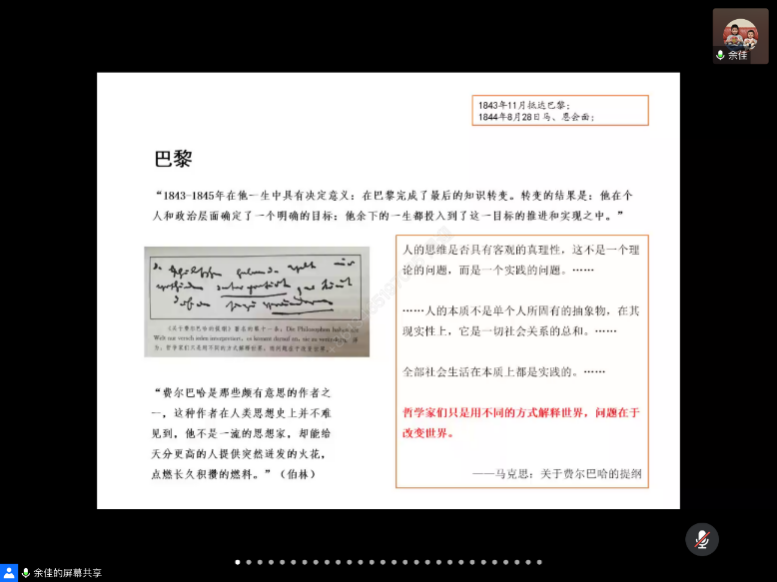 余佳
1843年11月抵达巴黎；
1844年8月28日马、恩会面；
巴黎
“1843-1845年在他一生中具有决定意义：在巴黎完成了最后的知识转变。转变的结果是：他在个
人和政治层面确定了一个明确的目标：他余下的一生都投入到了这一目标的推进和实现之中。”
人的思维是否具有客观的真理性，这不是一个理
论的问题，而是一个实践的问题。……
……人的本质不是单个人所固有的抽象物，在其
现实性上，它是一切社会关系的总和。……
全部社会生活在本质上都是实践的。……
哲学家们只是用不同的方式解释世界，问题在于
改变世界。
——马克思：关于费尔巴哈的提纲
《关于费尔巴哈的提纲》著名的第十一条：Die Philosophen haben die
Welt nur verschieden interpretiert, es kommt darauf an, sie zu verändern.
“费尔巴哈是那些颇有意思的作者之
一，这种作者在人类思想史上并不难
见到，他不是一流的思想家，却能给
天分更高的人提供突然迸发的火花，
点燃长久积攒的燃料。”（伯林）
余佳的屏幕共享